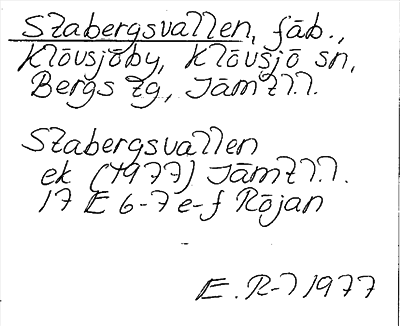 Stabergsvallen, fäb.,
Klövsjöby, Klövsjö sn,
Bergs tg, Jämtl.l.
Stabergsvallen
ek (1977) Jämtl.l.
17 E 6-7 e-f Röjan
E. R-l 1977